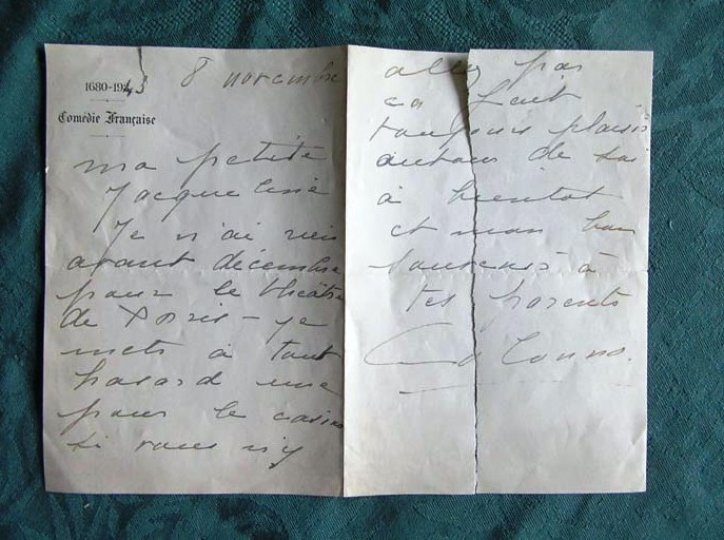 1680-1943
8 novembre
Comédie Française
ma petite
Jacqueline
Je n'ai rien
avant décembre
pour le théâtre
de Paris - je
mets à tout
hasard une
pour le casino
si vous n'y
allez pas
ca fait
toujours plaisir
autour de soi
à bientot
et mon bon
souvenir à
tes parents